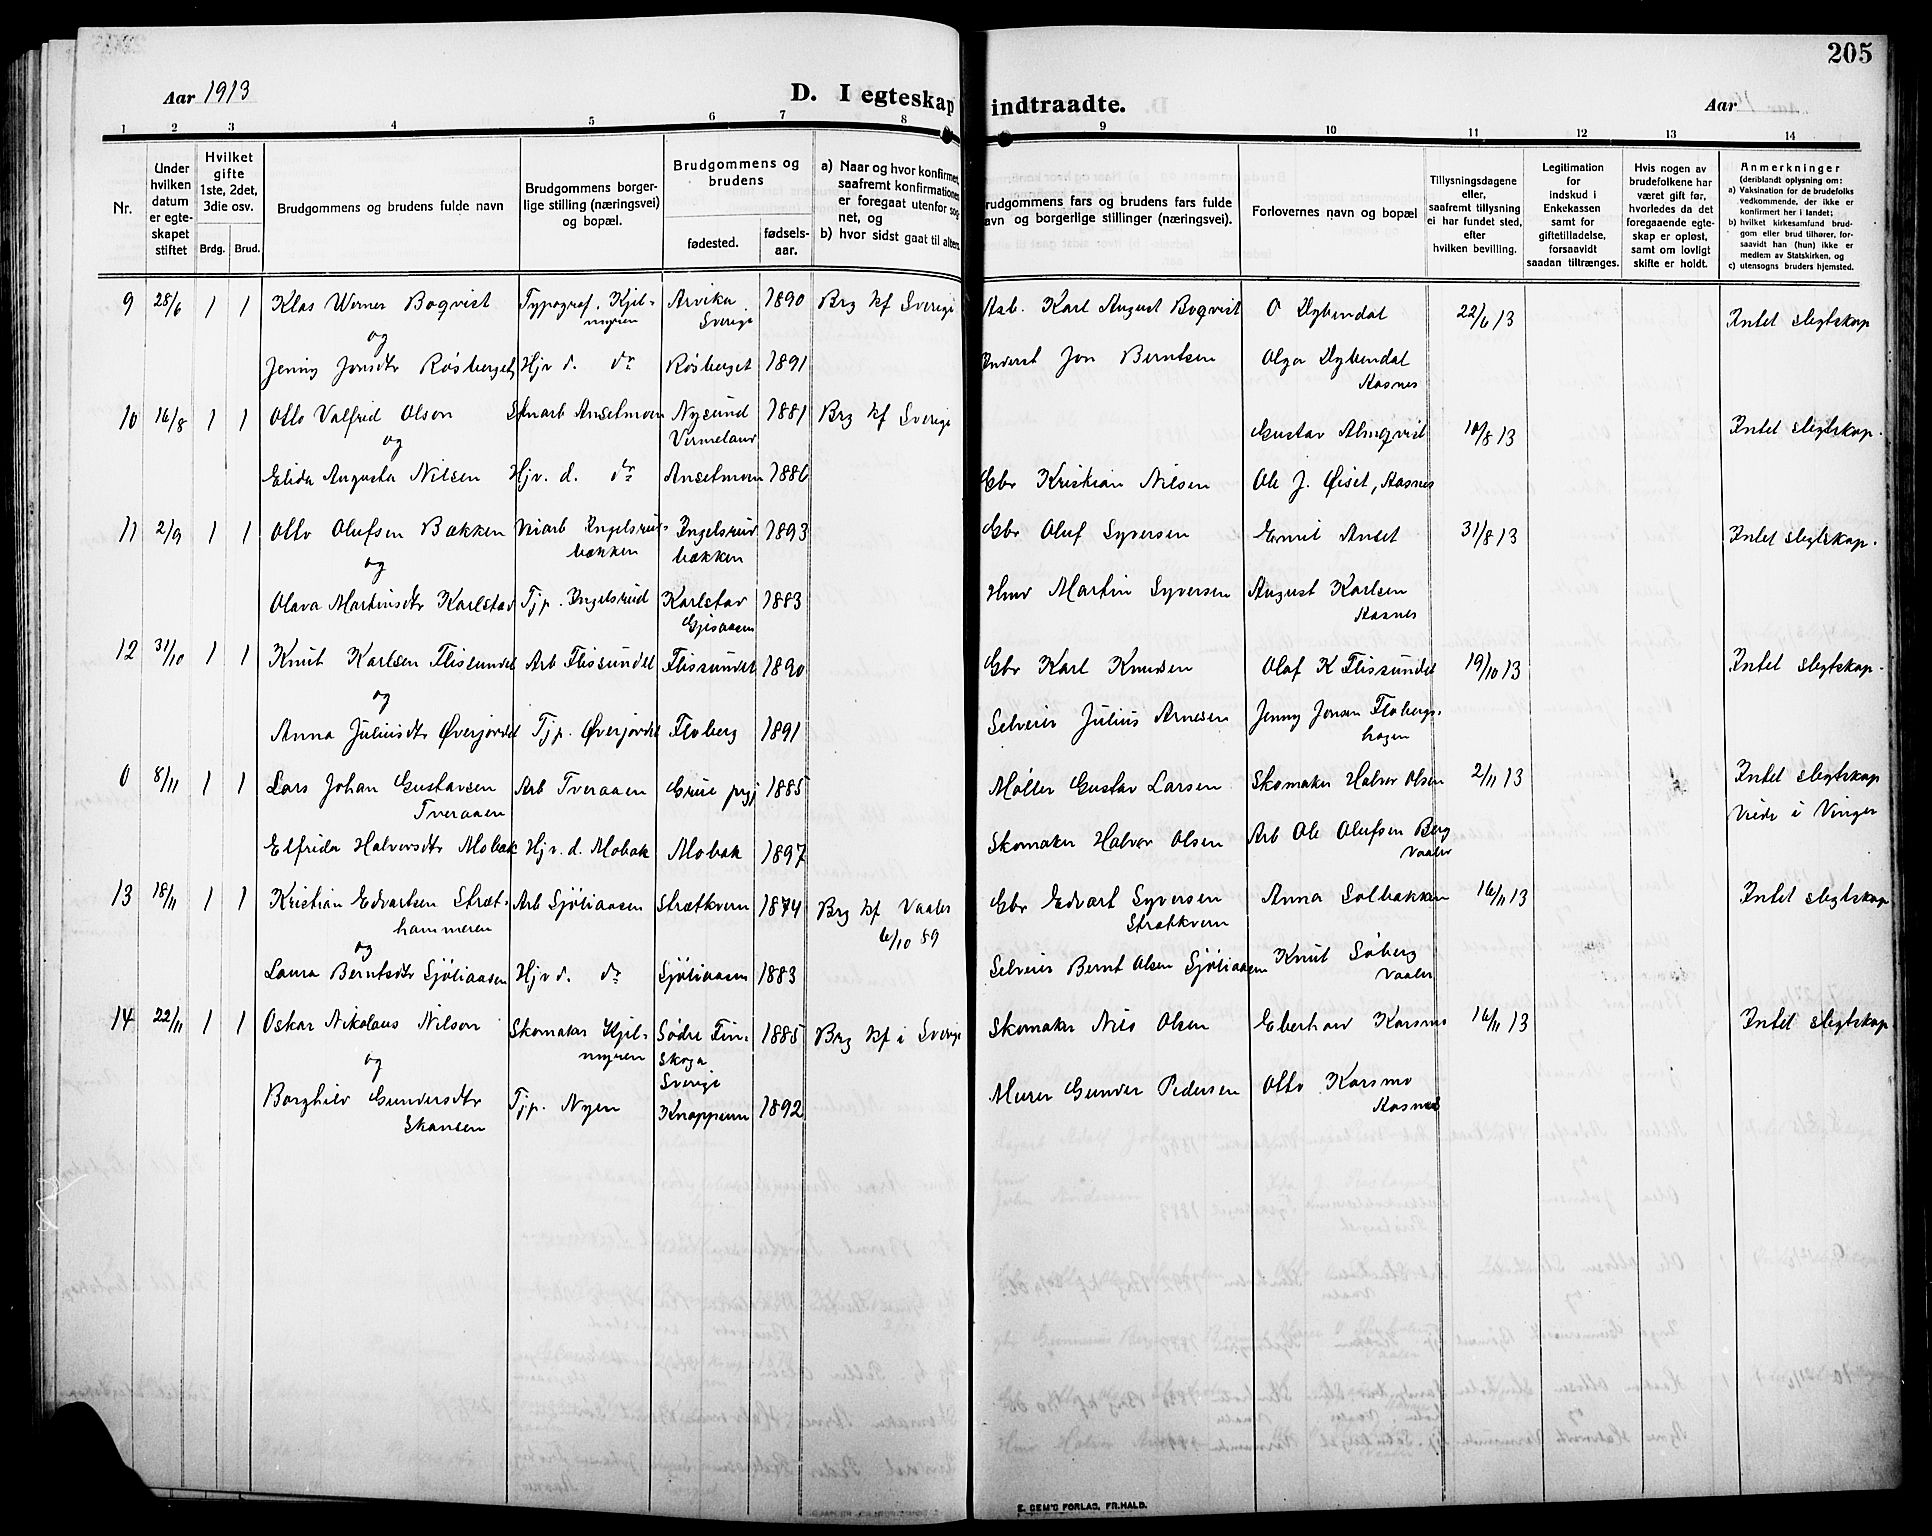 205
Aar 1913
D. I egteskap indtraadte.
Aar
1 2 3 4 5 6 7 8 9 10 11 12 13 14
Nr.
Under hvilken datum er egteskapet stiftet
Hvilket gifte 1ste, 2det, 3die osv.
Brdg. Brud.
Brudgommens og brudens fulde navn
Brudgommens borgerlige stilling (næringsvei) og bopæl.
Brudgommens og brudens
fødested.
fødselsaar.
a) Naar og hvor konfirmet, saafremt konfirmationen er foregaat utenfor sognet, og
b) hvor sidst gaat til alters.
Brudgommens fars og brudens fars fulde navn og borgerlige stillinger (næringsvei).
Forlovernes navn og bopæl
Tillysningsdagene eller, saafremt tillysning ei har fundet sted, efter hvilken bevilling.
Legitimation for indskud i Enkekassen samt for giftetilladelse, forsaavidt saadan tiltrænges.
Hvis nogen av brudefolkene har været gift før, hvorledes da det foregaaende egteskap er opløst, samt om lovligt skifte er holdt.
Anmerkninger (deriblandt oplysning om:
a) Vaksination for de brudefolks vedkommende, der ikke er konfirmert her i landet;
b) hvilket kirkesamfund brudgom eller brud tilhører, forsaavidt han (hun) ikke er medlem av Statskirken, og
c) utensogns bruders hjemsted.
9 28/6 1 1 Klas Werner Boqvist Typograf. Kjelmyren Arvika Sverige 1890 Brg kf Sverige Arb. Karl August Boqvist O Dybendal 22/6 13 Intet slegtskap
og
Jenny Jonsdtr Røsberget Hjv d. do Røsberget 1891 Inderst Jon Berntsen Olga Dybendal Aasnes
10 16/8 1 1 Otto Valfrid Olson Stnarb Anselmoen Nysund Vermeland 1881 Brg kf Sverige Gustav Almqvist 10/8 13 Intet slegtskap.
og
Elida Augusta Nilsen Hjv. d. do Anselmoen 1886 Gbr Kristian Nilsen Ole J. Øiset, Aasnes
11 2/9 1 1 Otto Olufsen Bækken Veiarb Engelsrudbækken Engelsrudbækken 1893 Gbr Oluf Syversen Emil Anset 31/8 13 Intet slegtskap.
og
Olava Martinsdtr Karlstad Tjp. Engelsrud Karlstad Gjesaasen 1883 Hmd Martin Syversen August Karlsen Aasnes
12 31/10 1 1 Knut Karlsen Flissundet Arb Flissundet Flissundet 1890 Gbr Karl Knudsen Olaf K Flissundet 19/10 13 Intet slegtskap.
og
Anna Juliusdtr Øverjordet Tjp. Øverjordet Floberg 1891 Selveier Julius Arnesen Jenny Jonsen Flobergshagen
0 8/11 1 1 Lars Johan Gustavsen Tveraaen Arb Tveraaen Grue prgj 1885 Møller Gustav Larsen Skomaker Halvor Olsen 2/11 13 Intet slegtskap
Viede i Vinger
Elfrida Halvorsdtr Mobak Hjv. d. Mobak Mobak 1897 Skomaker Halvor Olsen Arb Ole Olufsen Berg Vaaler
13 18/11 1 1 Kristian Edvartsen Strætthammeren Arb Sjøliaasen Strætkvern 1874 Brg kf Vaaler 6/10 89 Gbr Edvart Syversen Strætkvern Anna Solbakken 16/11 13 Intet slegtskap
og
Laura Berntsdtr Sjøliaasen Hjv d. do Sjøliaasen 1883 Selveier Bernt Olsen Sjøliaasen Knut Søberg Vaaler
14 22/11 1 1 Oskar Nikolaus Nilson Skomaker Kjelmyren Södre Finskoga Sverige 1885 Brg kf i Sverige Skomaker Nils Olsen Eberhard Karsmo 16/11 13 Intet slegtskap
og
Borghild Gundersdtr Skansen Tjp. Nyen Knappeum 1892 Murer Gunder Pedersen Otto Karsmo Aasnes
E. SEM'S FORLAG, FR.HALD.